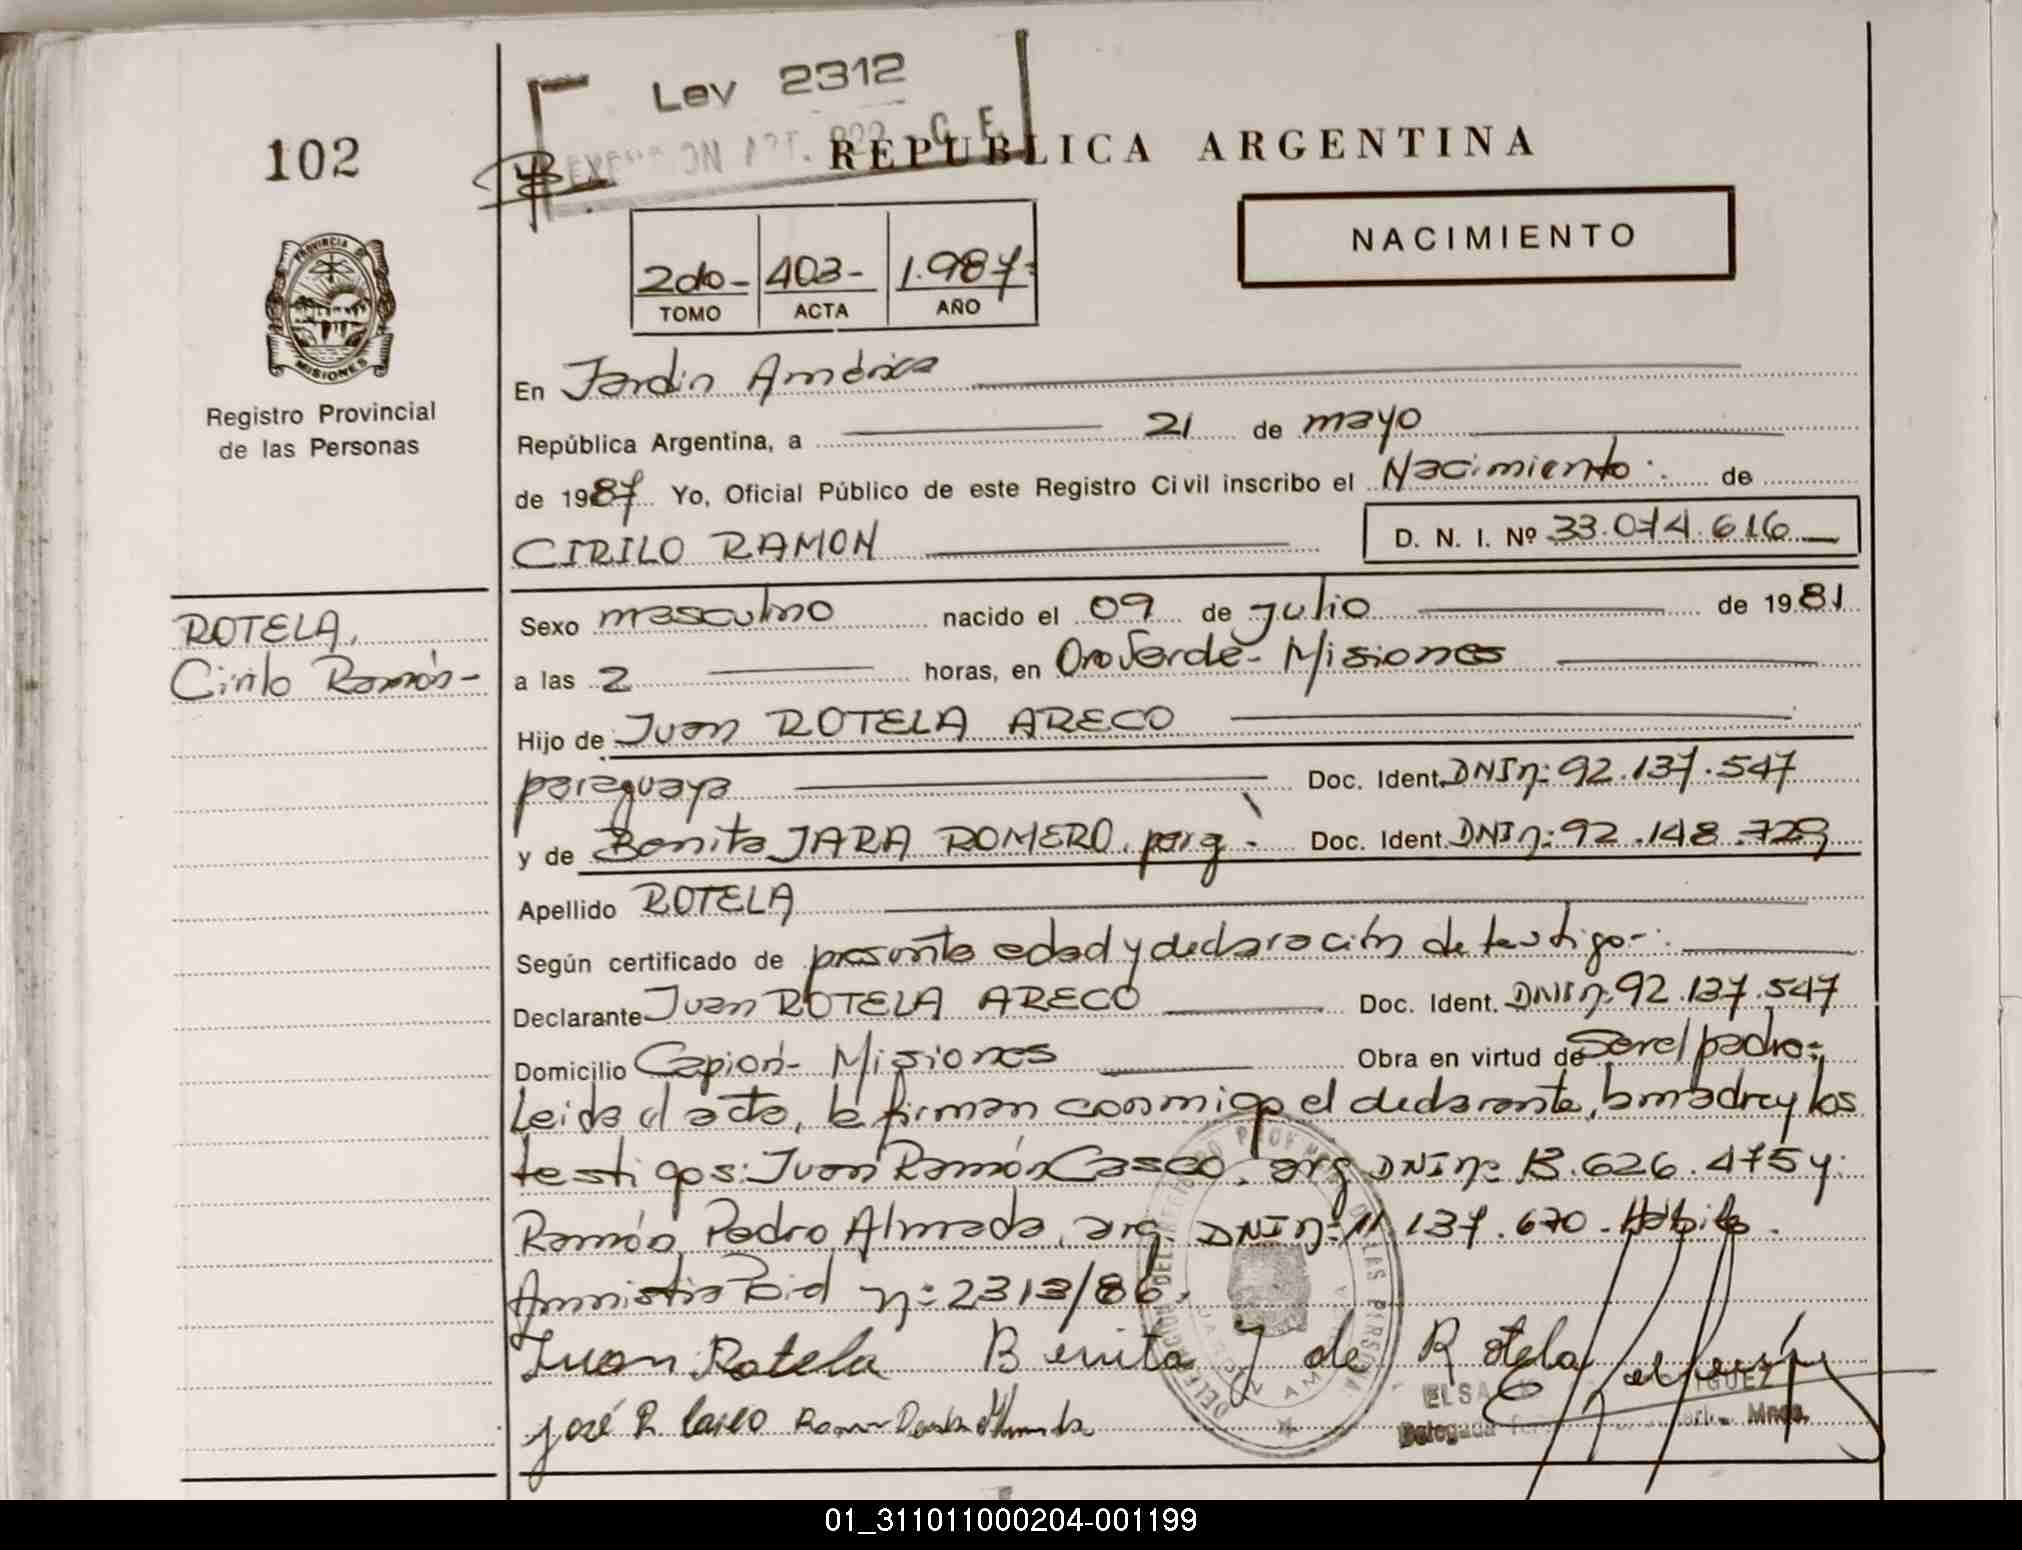 Ley 2312
102
REPUBLICA ARGENTINA
NACIMIENTO
2do- 403- 1.987-
TOMO ACTA AÑO
PROVINCIA DE
MISIONES
Registro Provincial
de las Personas
En Jardín América
República Argentina, a 21 de mayo
de 1987 Yo, Oficial Público de este Registro Civil inscribo el Nacimiento de
CIRILO RAMON D. N. I. Nº 33.074.616
ROTELA,
Cirilo Ramón-
Sexo masculino nacido el 09 de julio de 1981
a las 2 horas, en Oro Verde- Misiones
Hijo de Juan ROTELA ARECO
paraguaya Doc. Ident. DNI n: 92.137.547
y de Benita JARA ROMERO, parg. Doc. Ident. DNI n: 92.148.729
Apellido ROTELA
Según certificado de presunta edad y declaración de testigo-
Declarante Juan ROTELA ARECO Doc. Ident. DNI n: 92.137.547
Domicilio Capioví- Misiones Obra en virtud de ser el padre-
Leida el acta, la firman conmigo el declarante, la madre y los
testigos: Juan Ramón Casco, arg. DNI n: 13.626.475 y
Ramón Pedro Almada, arg. DNI n: 11.137.670.
Amnistia n: 2313/86.
Juan Rotela Benita J de Rotela
José R Casco
ELSA
Delegada
Mnes.
01_311011000204-001199